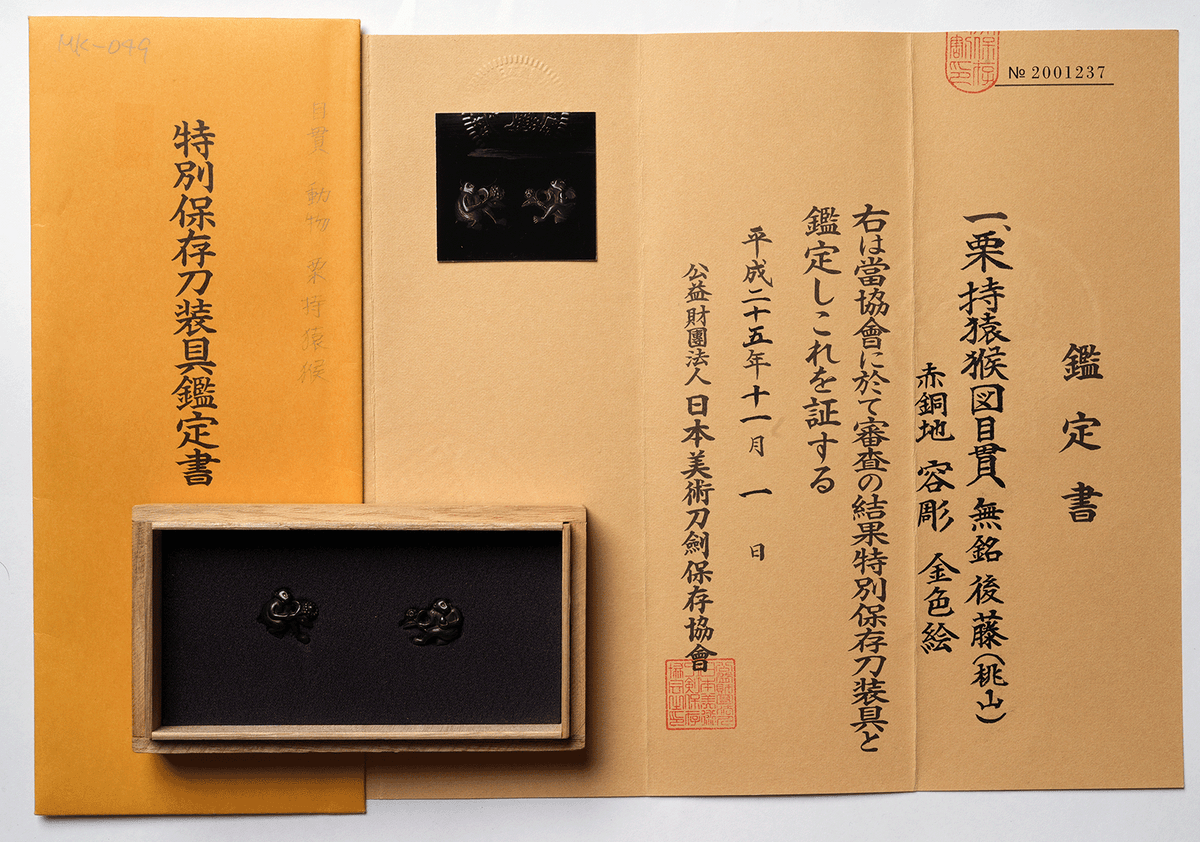 MK-049
目貫 動物 栗持猿猴
特別保存刀装具鑑定書
保存
割印
№ 2001237
鑑定書
一、栗持猿猴図目貫 無銘 後藤(桃山)
赤銅地 容彫 金色絵
右は當協會に於て審査の結果特別保存刀装具と
鑑定しこれを証する
平成二十五年十一月 一 日
公益財團法人 日本美術刀劍保存協會